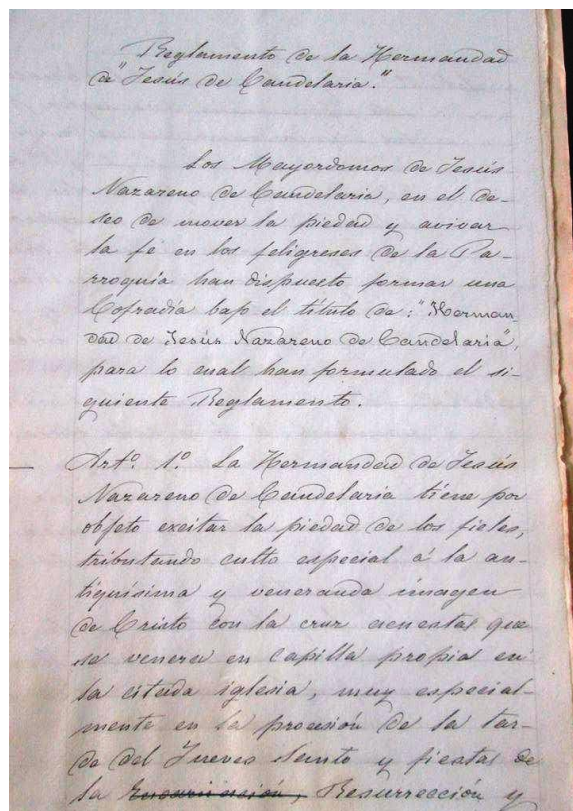 Reglamento de la Hermandad
de "Jesús de Candelaria."
Los Mayordomos de Jesús
Nazareno de Candelaria, en el de-
seo de mover la piedad y avivar
la fe en los feligreses de la Pa-
rroquia han dispuesto formar una
Cofradía bajo el título de: "Herman
dad de Jesús Nazareno de Candelaria",
para lo cual han formulado el si-
guiente Reglamento.
Artº. 1º. La Hermandad de Jesús
Nazareno de Candelaria tiene por
objeto excitar la piedad de los fieles,
tributando culto especial á la an-
tiquísima y veneranda imagen
de Cristo con la cruz acuestas que
se venera en capilla propia en
la citada iglesia, muy especial-
mente en la procesión de la tar-
de del Jueves Santo y fiestas de
la Resurrección y